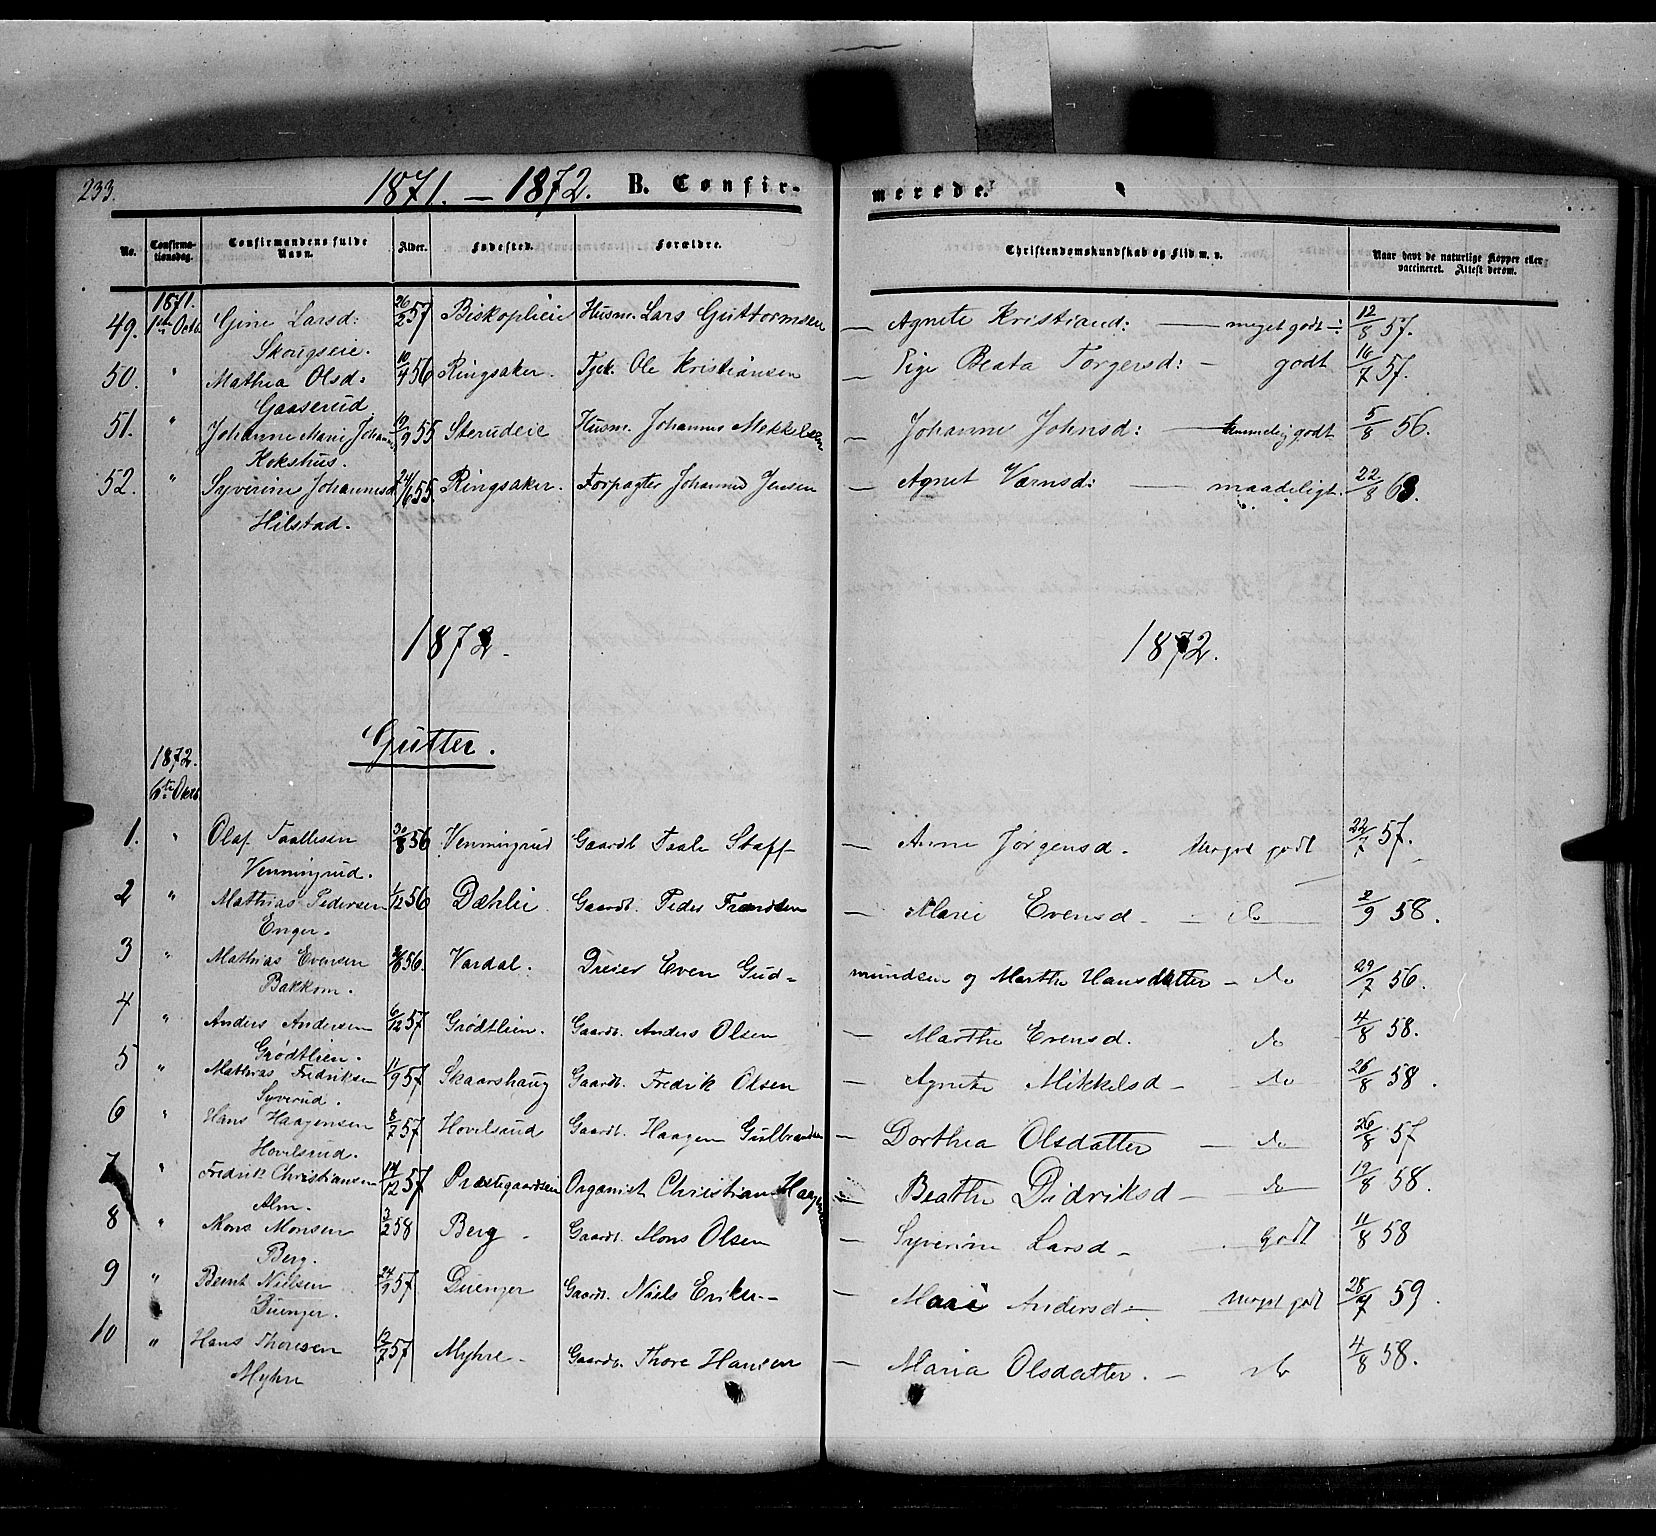 233.
1871. — 1872. B. Confir- merede.
No. Confirmationsdag. Confirmandens fulde Navn. Alder. Fødested. Forældre. Christendomskundskab og Flid m. v. Naar havt de naturlige Kopper eller vaccineret. Attest derom.
1871.
49. 1ste Octb. Gine Larsd: 26/2 57 Biskoplieie Husm. Lars Guttormsen — Agnete Kristiand: — meget godt ÷ 12/8 57.
Skougseie.
50. " Mathea Olsd: 10/9 56 Ringsaker. Tjek. Ole Kristiansen — Pige Beata Torgersd: — godt 16/7 57.
Gaaserud
51. " Johanne Marie Johann 19/9 55 Sterudeie Husm. Johannes Mekkelsen — Johanne Johnsd: — temmelig godt 5/8 56.
Kokshus.
52. " Syverine Johannesd 24/6 55 Ringsaker. Forpagter Johannes Jensen — Agnet Værnsd: — maadeligt. 22/8 63.
Hilstad.
1872. 1872.
Gutter.
1872.
6te Oktb.
1. " Olaf Taallesen 30/8 56 Venningrud Gaardb Taale Staff — Anne Jørgensd. Meget godt 22/7 57.
Venningrud.
2 " Mathias Pedersen 1/12 56 Dæhlie. Gaardb. Peder Frandsen — Marie Evensd — do 2/9 58.
Enger.
3 " Mathias Evensen 56. Vardal. Dreier Even Gud= mundsen og Marthe Hansdatter — do 29/7 56.
Bakkom.
4 " Anders Andersen 6/12 57 Grødtlien. Gaardb. Anders Olsen — Marthe Evensd. do 4/8 58.
Grødtlien.
5 " Mathias Fredriksen 11/9 57 Skaarshaug Gaardb. Fredrik Olsen — Agnete Mikkelsd — do 26/8 58.
Syverud.
6 " Hans Haagensen 8/7 57 Hovelsrud Gaardb. Haagen Gulbrandsen — Dorthea Olsdatter — do 26/8 57
Hovelsrud.
7 " Fredrik Christiansen 14/12 57 Præstegaardseie Organist Christian Haagen — Beathe Didriksd — do 19/8 58.
Alm.
8 " Mons Monsen 3/2 58 Berg. Gaardb. Mons Olsen — Syverine Larsd — Godt 11/8 58
Berg.
9 " Bernt Nielsen 24/9 57 Duenger Gaardb. Niels Eriksen — Mari Andersd — Meget godt 28/7 59.
Duenger.
10 " Hans Thoresen 12/7 57 Myhre. Gaardb. Thore Hansen — Maria Olsdatter. — do 4/8 58.
Myhre